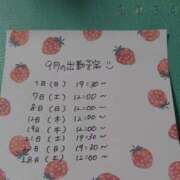 9月の出勤予定
1日(日) 19:30～
7日(土) 12:00～
8日(日) 12:00～
12日(木) 12:00～
19日(木) 12:00～
21日(土) 19:30～
22日(日) 19:30～
28日(土) 12:00～